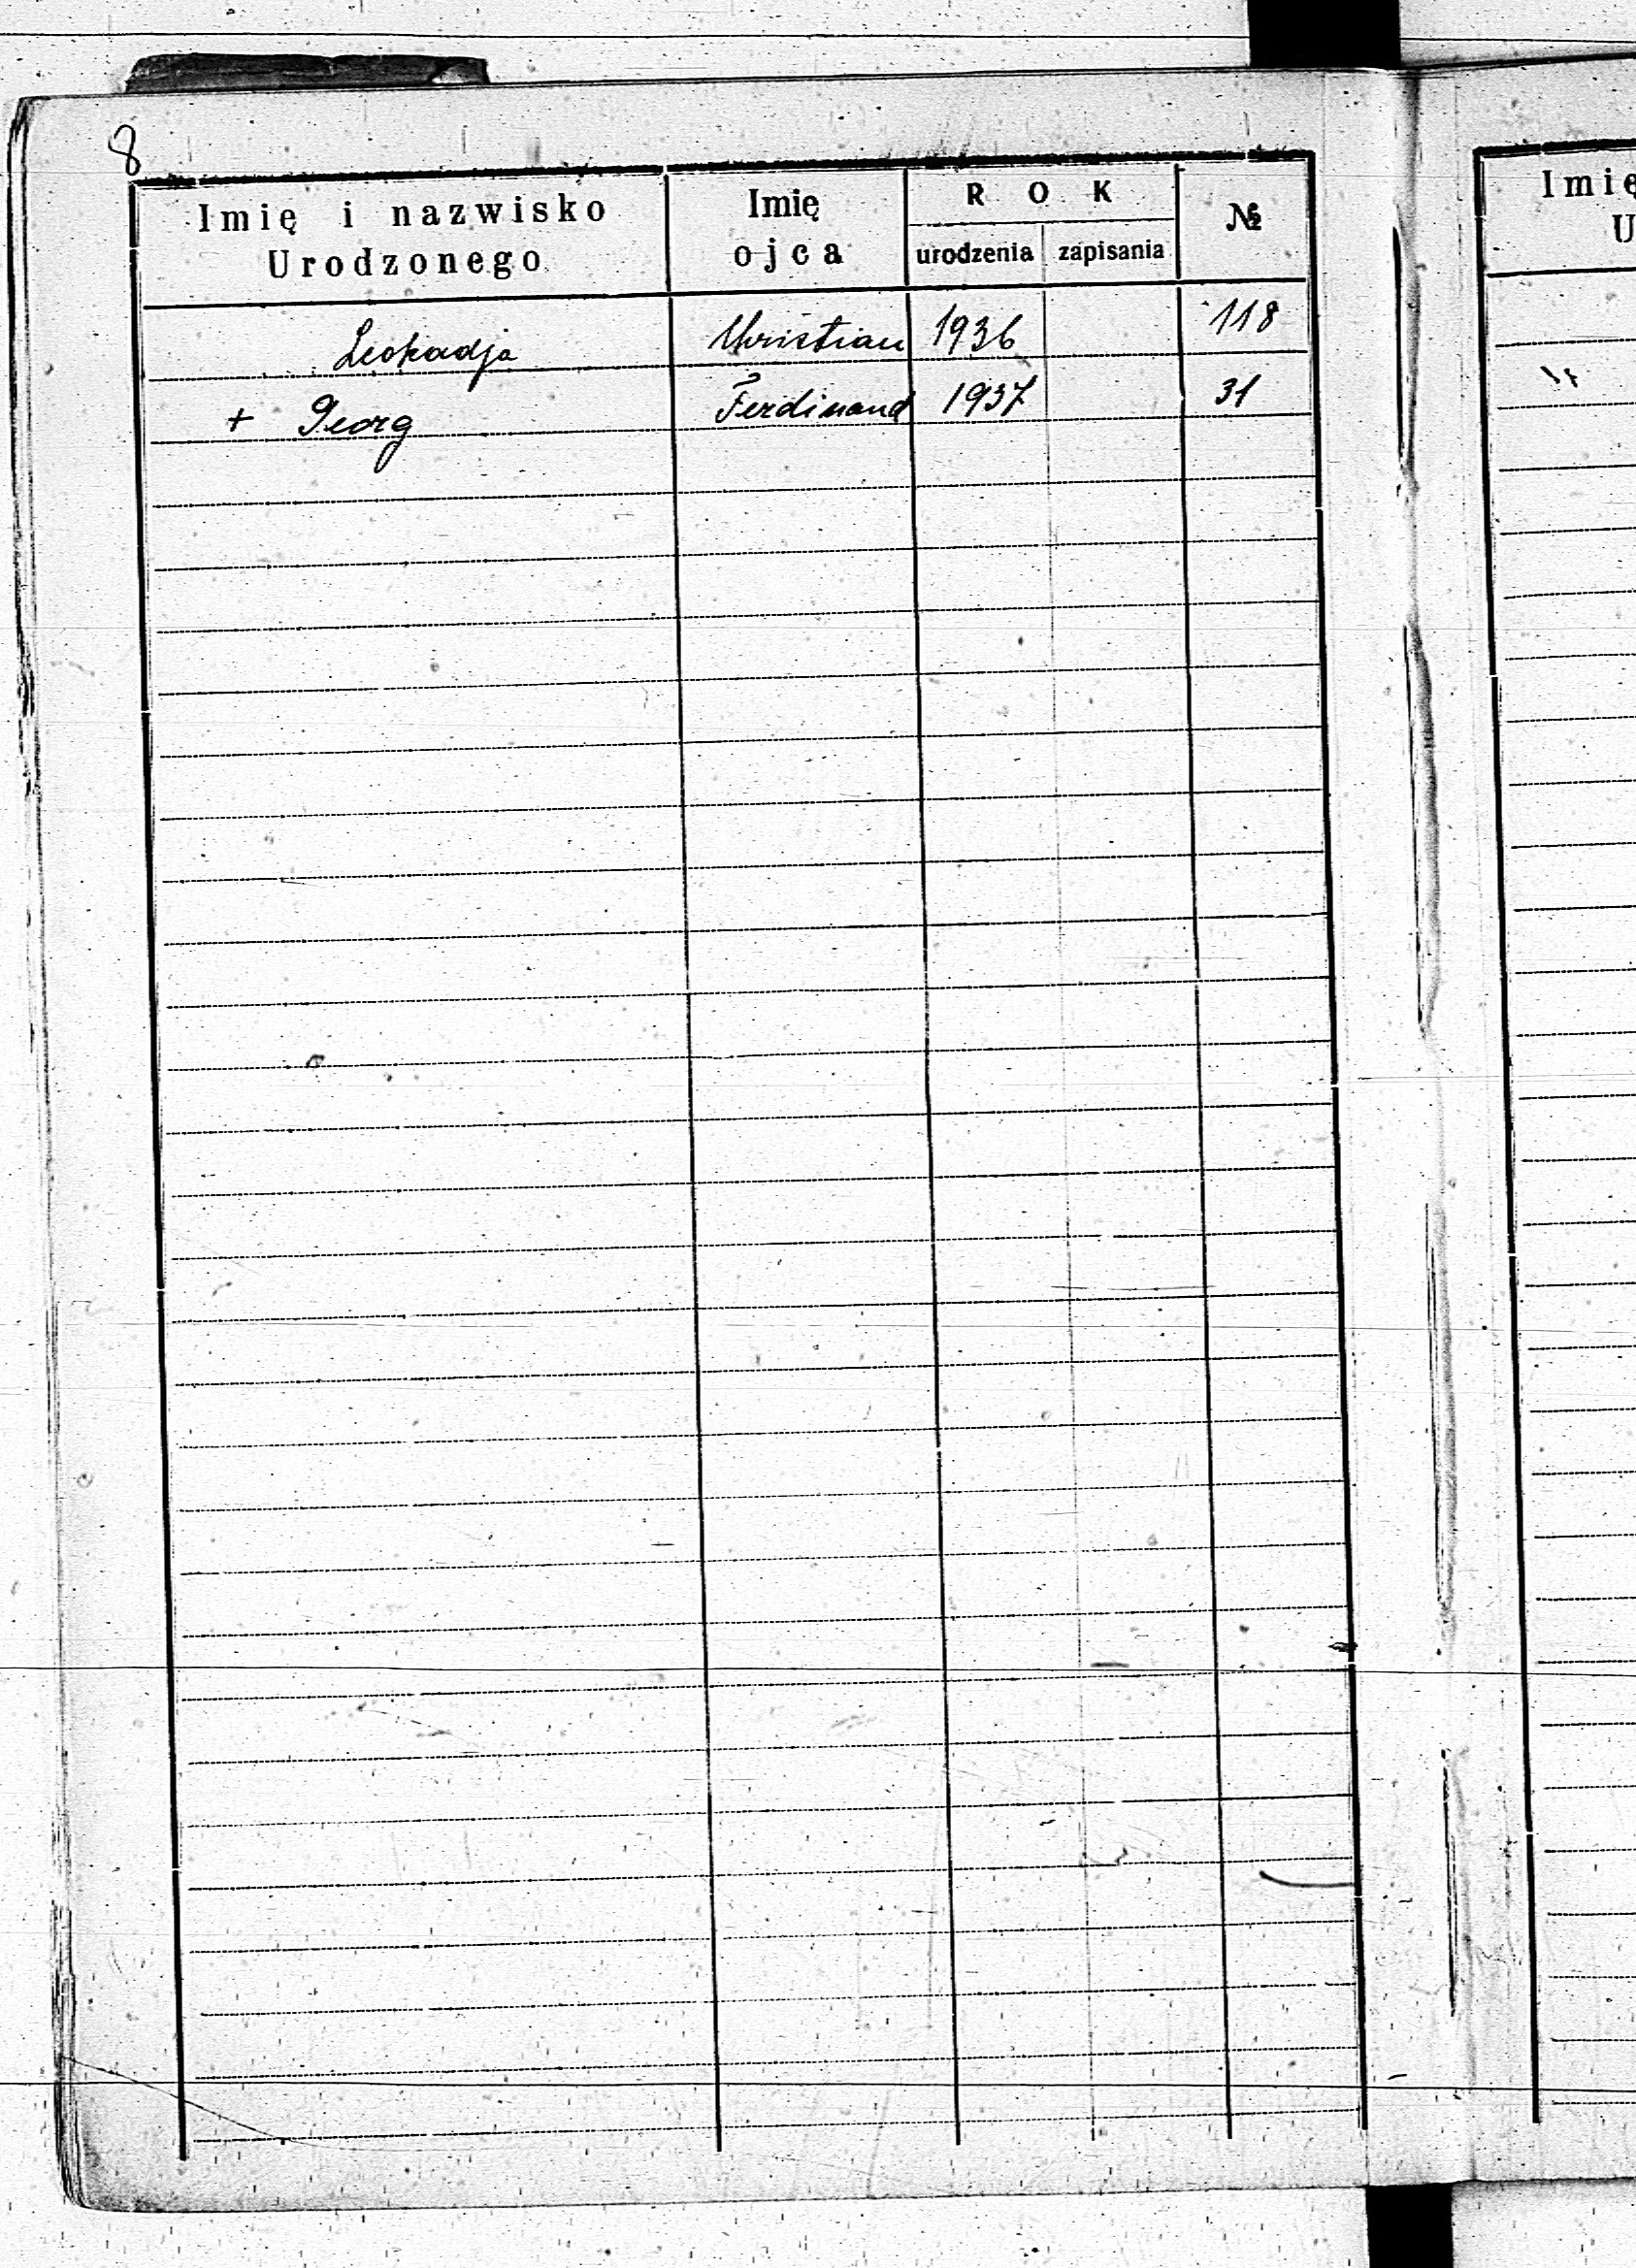 8
Imię i nazwisko Urodzonego Imię ojca ROK urodzenia zapisania №
Leokadja Christian 1936 118
+ Georg Ferdinand 1937 31
Imię
U